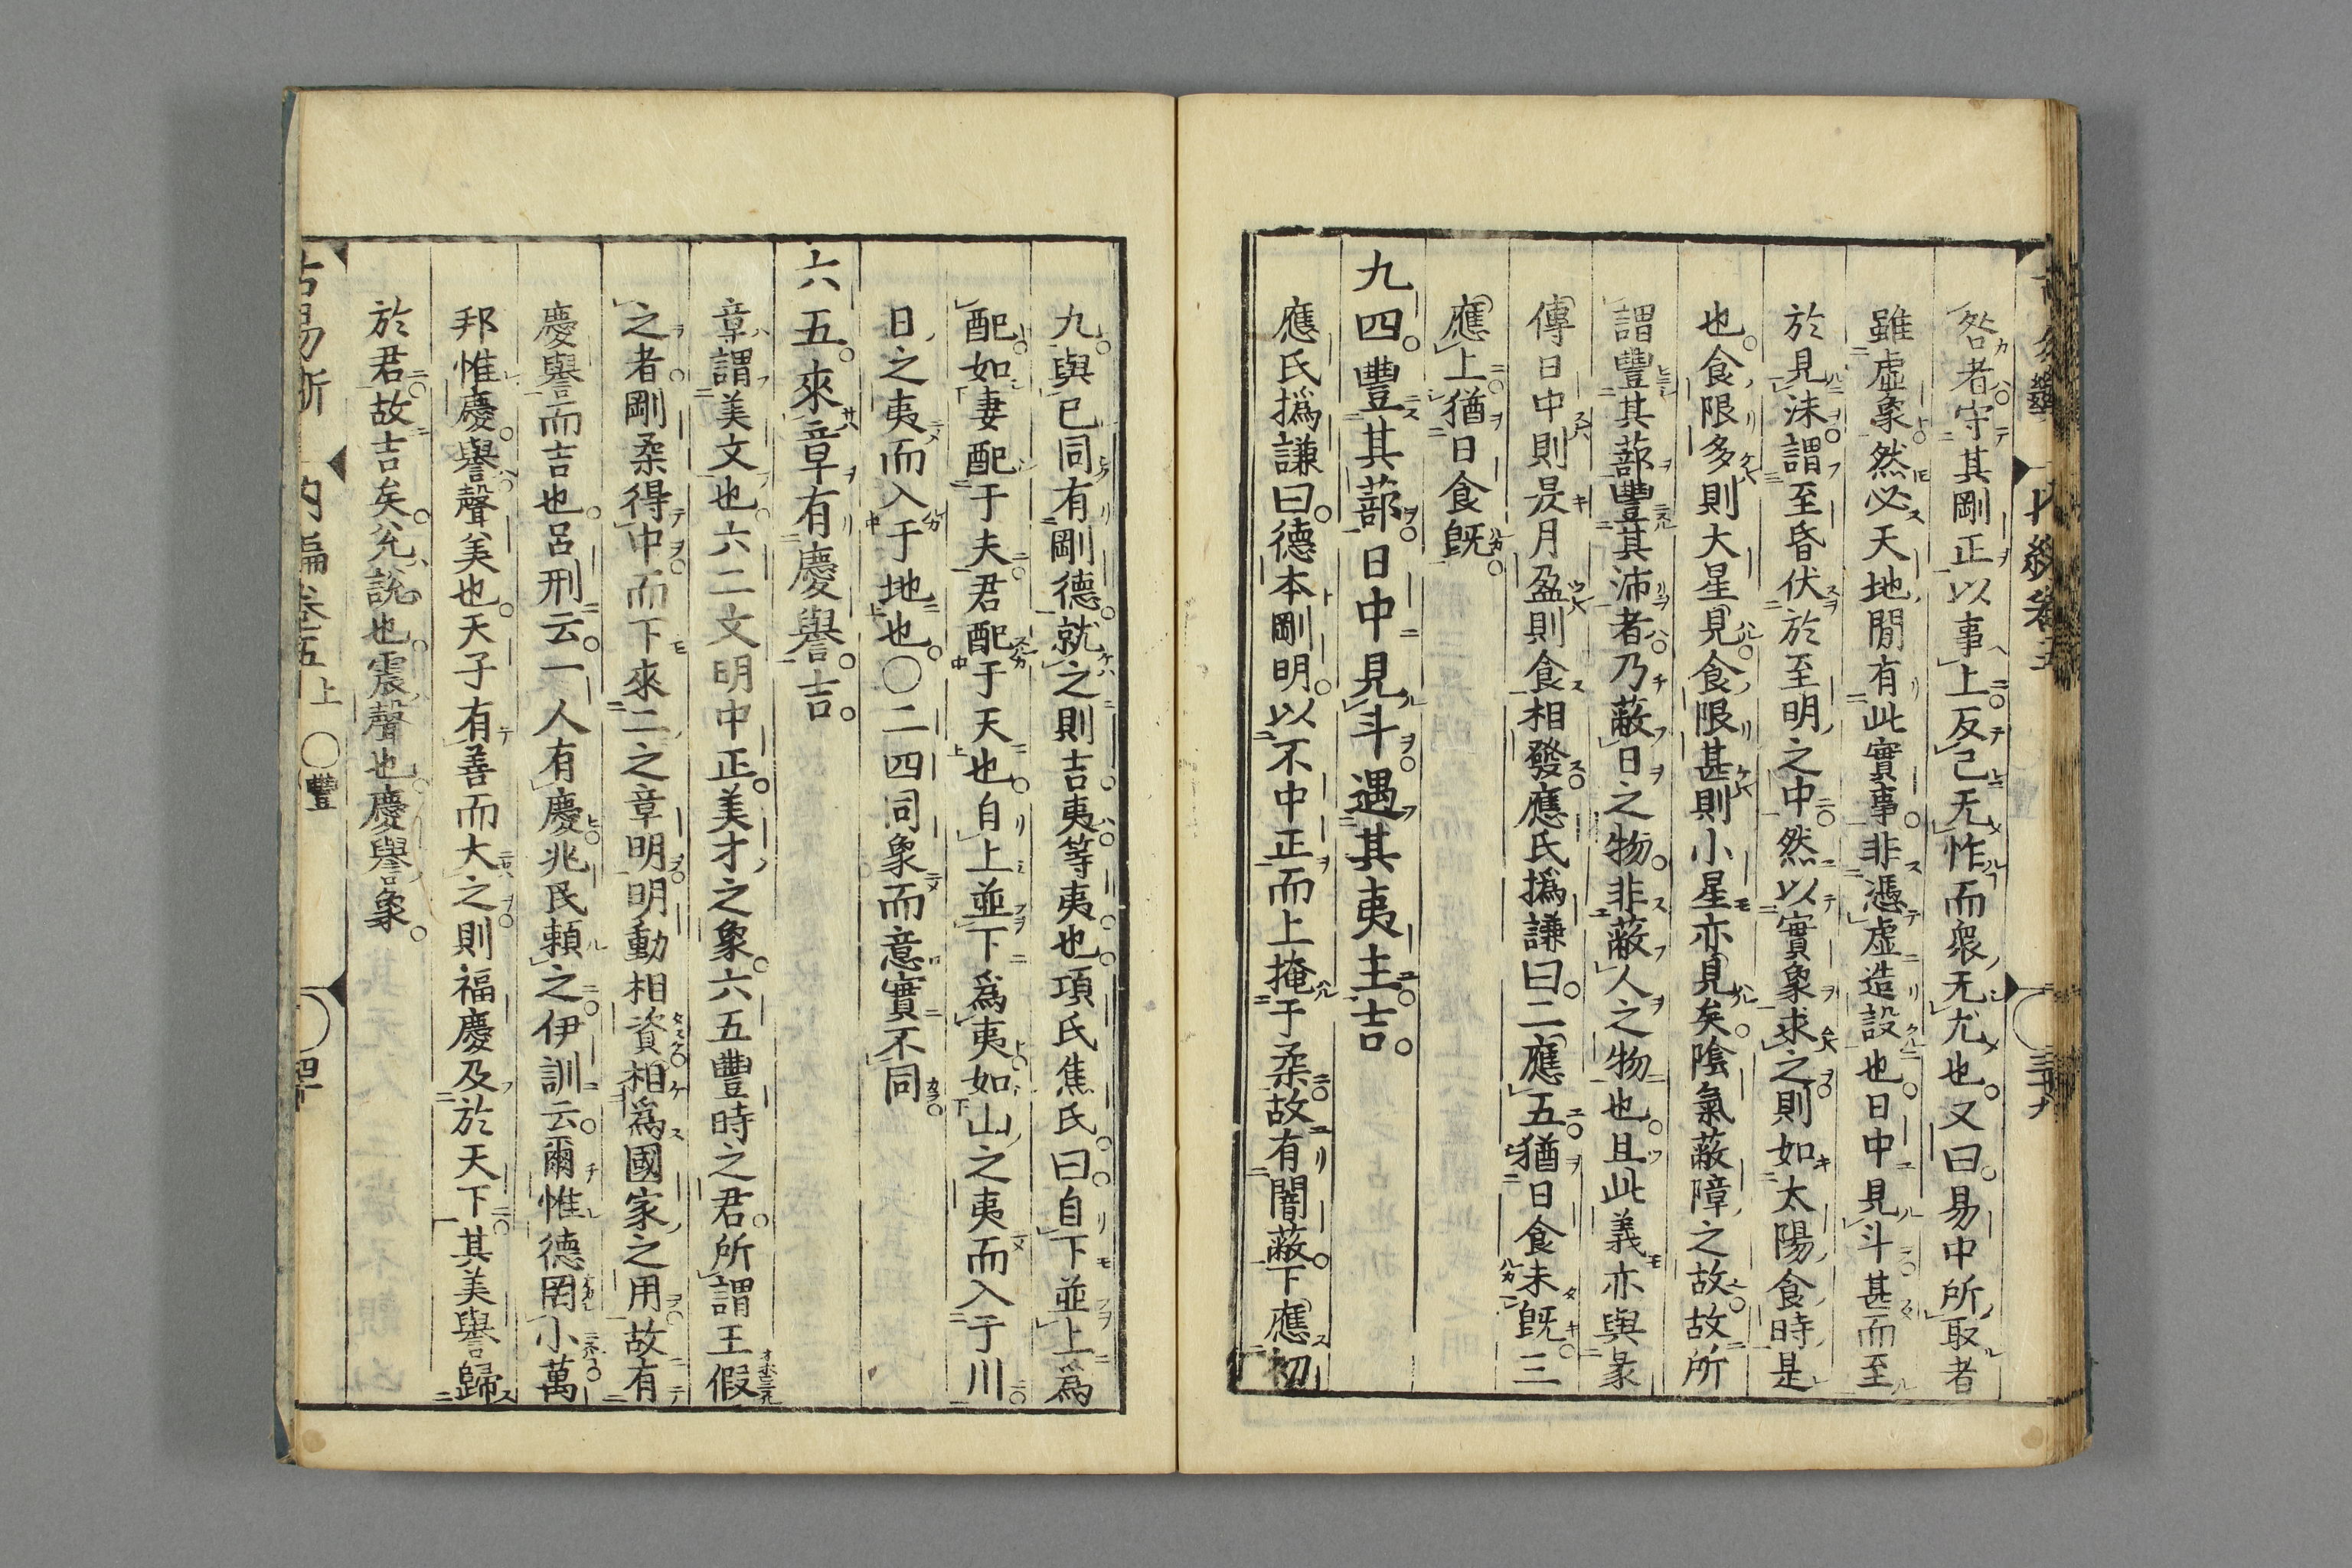 咎者守其剛正以事上反己无怍而衆无尤也又曰易中所取者
雖虛象然必天地間有此實事非憑虛造設也日中見斗甚而至
於見沬謂至昏伏於至明之中然以實象求之則如太陽食時是
也食限多則大星見食限甚則小星亦見矣陰氣蔽障之故故所
謂豐其蔀豐其沛者乃蔽日之物非蔽人之物也且此義亦與彖
傳日中則昃月盈則食相發應氏撝謙曰二應五猶日食未既三
應上猶日食既
九四豐其蔀日中見斗遇其夷主吉
應氏撝謙曰德本剛明以不中正而上掩于柔故有闇蔽下應初
九與己同有剛德就之則吉夷等夷也項氏焦氏曰自下並上爲
配如妻配于夫君配于天也自上並下爲夷如山之夷而入于川
日之夷而入于地也○二四同象而意實不同
六五來章有慶譽吉
章謂美文也六二文明中正美才之象六五豐時之君所謂王假
之者剛柔得中而下來二之章明明動相資相爲國家之用故有
慶譽而吉也呂刑云一人有慶兆民賴之伊訓云爾惟德罔小萬
邦惟慶譽聲美也天子有善而大之則福慶及於天下其美譽歸
於君故吉矣兌說也震聲也慶譽象
古易斷 內編卷五上 ○豐 四十